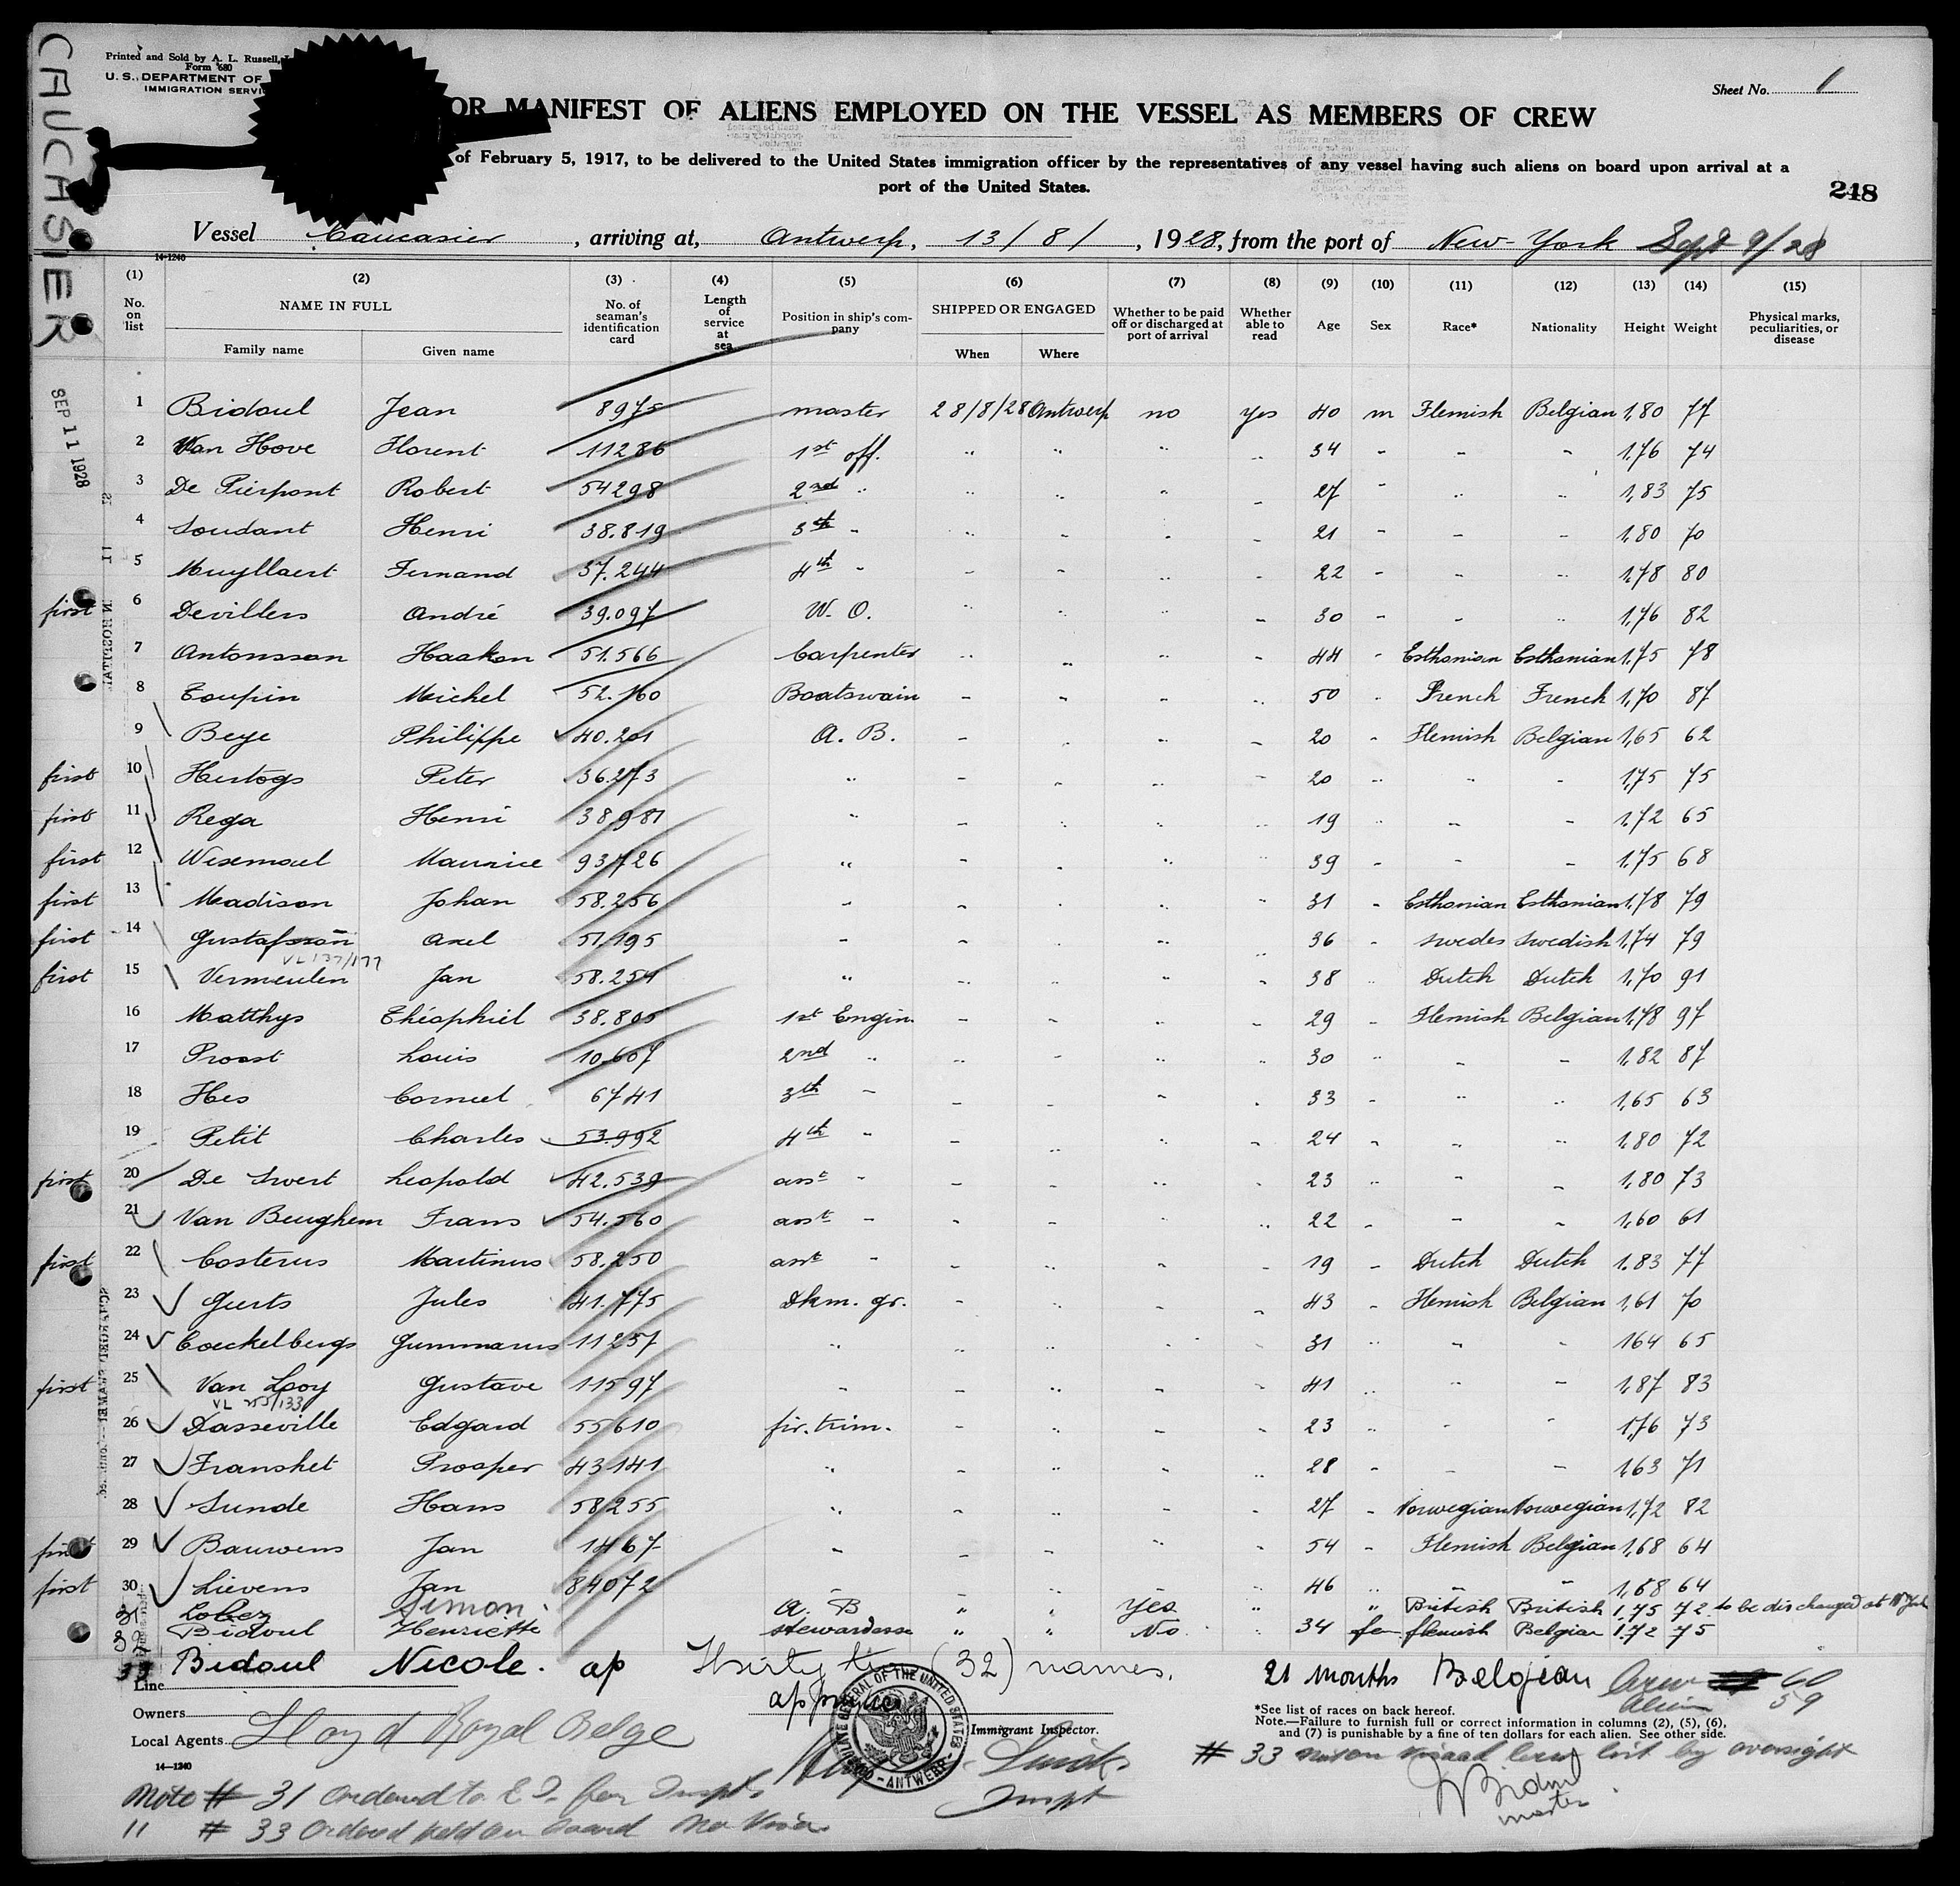 CAUCASIER
Printed and Sold by A. L. Russell,
Form 680
U. S. DEPARTMENT OF
IMMIGRATION SERVI
Sheet No. 1
OR MANIFEST OF ALIENS EMPLOYED ON THE VESSEL AS MEMBERS OF CREW
of February 5, 1917, to be delivered to the United States immigration officer by the representatives of any vessel having such aliens on board upon arrival at a
port of the United States.
248
Vessel Caucasier, arriving at, Antwerp, 13/8/, 1928, from the port of New-York Sept 9/28
14-1240
(1) (2) (3) (4) (5) (6) (7) (8) (9) (10) (11) (12) (13) (14) (15)
No. on list NAME IN FULL Family name Given name No. of seaman's identification card Length of service at sea Position in ship's company SHIPPED OR ENGAGED When Where Whether to be paid off or discharged at port of arrival Whether able to read Age Sex Race* Nationality Height Weight Physical marks, peculiarities, or disease
SEP 11 1928
1 Bidoul Jean 8975 master 28/8/28 Antwerp no yes 40 m Flemish Belgian 1,80 77
2 Van Hove Florent 11286 1st off. " " " " 34 " " " 1,76 74
3 De Pierpont Robert 54298 2nd " " " " " 27 " " " 1,83 75
4 Soudant Henri 38.819 3th " " " " " 21 " " " 1,80 70
5 Muyllaert Fernand 37.244 4th " " " " " 22 " " " 1,78 80
first 6 Devillers André 39.097 W. O. " " " " 30 " " " 1,76 82
7 Antonsson Haakon 51.566 Carpenter " " " " 44 " Esthonian Esthonian 1,75 78
8 Toupin Michel 52.160 Boatswain " " " " 50 " French French 1,70 87
9 Beye Philippe 40.201 A. B. " " " " 20 " Flemish Belgian 1,65 62
first 10 Hertogs Peter 36.273 " " " " " 20 " " " 1,75 75
first 11 Rega Henri 38981 " " " " " 19 " " " 1,72 65
first 12 Wesemael Maurice 93726 " " " " " 39 " " " 1,75 68
first 13 Madison Johan 58.256 " " " " " 31 " Esthonian Esthonian 1,78 79
first 14 Gustafsson Axel 51.195 " " " " " 36 " swedes swedish 1,74 79
first 15 Vermeulen Jan 58.254 " " " " " 38 " Dutch Dutch 1,70 91
16 Matthys Théophiel 38.805 1st Engin. " " " " 29 " Flemish Belgian 1,78 97
17 Proost Louis 10.607 2nd " " " " " 30 " " " 1,82 87
18 Hes Corneel 6741 3th " " " " " 33 " " " 1,65 63
19 Petit Charles 53.992 4th " " " " " 24 " " " 1,80 72
first 20 De Swert Leopold 42.539 asst " " " " " 23 " " " 1,80 73
21 Van Beughem Frans 54.560 asst " " " " " 22 " " " 1,60 61
first 22 Costerus Martinus 58.250 asst " " " " " 19 " Dutch Dutch 1.83 77
23 Geerts Jules 41.775 Dkm. gr. " " " " 43 " Flemish Belgian 1,61 70
24 Coeckelbergs Gummarus 11257 " " " " " 31 " " " 164 65
first 25 Van Looy Gustave 11597 " " " " " 41 " " " 1,87 83
VL 255/133
26 Dasseville Edgard 55610 fir. trim. " " " " 23 " " " 1,76 73
27 Franshet Prosper 43141 " " " " " 28 " " " 1,63 71
28 Sunde Hans 58255 " " " " " 27 " Norwegian Norwegian 1,72 82
first 29 Bauwens Jan 1467 " " " " " 54 " Flemish Belgian 1,68 64
first 30 Lievens Jan 84072 " " " " " 46 " " " 1,68 64
31 Lobez Simon A. B " " Yes " " British British 1,75 72 to be discharged at N York
32 Bidoul Henriette stewardess " " No " 34 fe flemish Belgian 1.72 75
33 Bidoul Nicole. Thirty two (32) names. 21 months Belgian Crew 60
Alien 59
Line
Owners
Local Agents Lloyd Royal Belge
Immigrant Inspector.
14—1240
*See list of races on back hereof.
Note.—Failure to furnish full or correct information in columns (2), (5), (6),
and (7) is punishable by a fine of ten dollars for each alien. See other side.
# 33 not on visaed crew list by oversight
J Bidoul
master
Note # 31 ordered to E I. for Inspt.
" # 33 ordered held on board No Visa